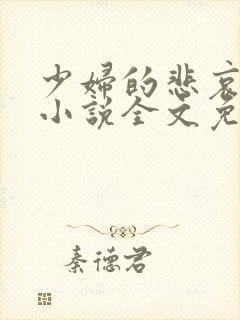 少婦的悲哀
小說全文免
秦德君